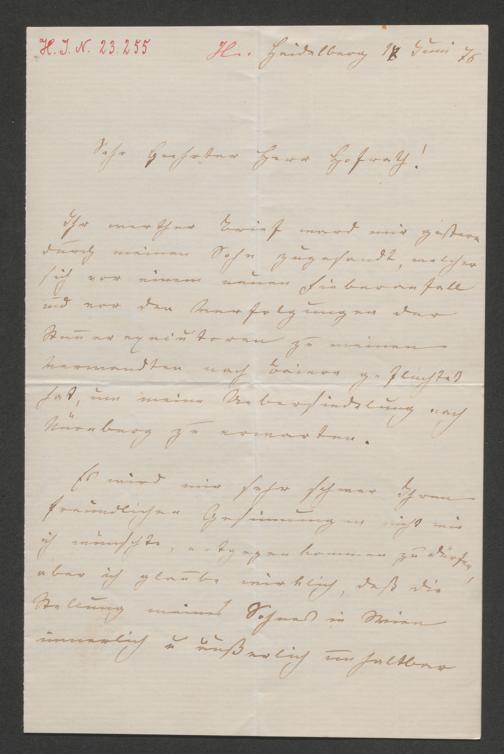 H. I. N. 23.255
H. Heidelberg 18 Juni 76
Sehr Geehrter Herr Hofrath!
Ihr werther Brief ward mir gestern
durch meinen Sohn zugesandt, welcher
sich vor einem neuen Fieberanfall
und vor den Verfolgungen der
Steuerexecutoren zu meinen
Verwandten nach Baiern geflüchtet
hat, um meine Uebersiedelung nach
Nürnberg zu erwarten.
Es wird mir sehr schwer Ihren
freundlichen Gesinnungen nicht wie
ich wünschte, entgegenkommen zu dürfen,
aber ich glaube wirklich, daß die
Stellung meines Sohnes in Wien
innerlich u äußerlich unhaltbar